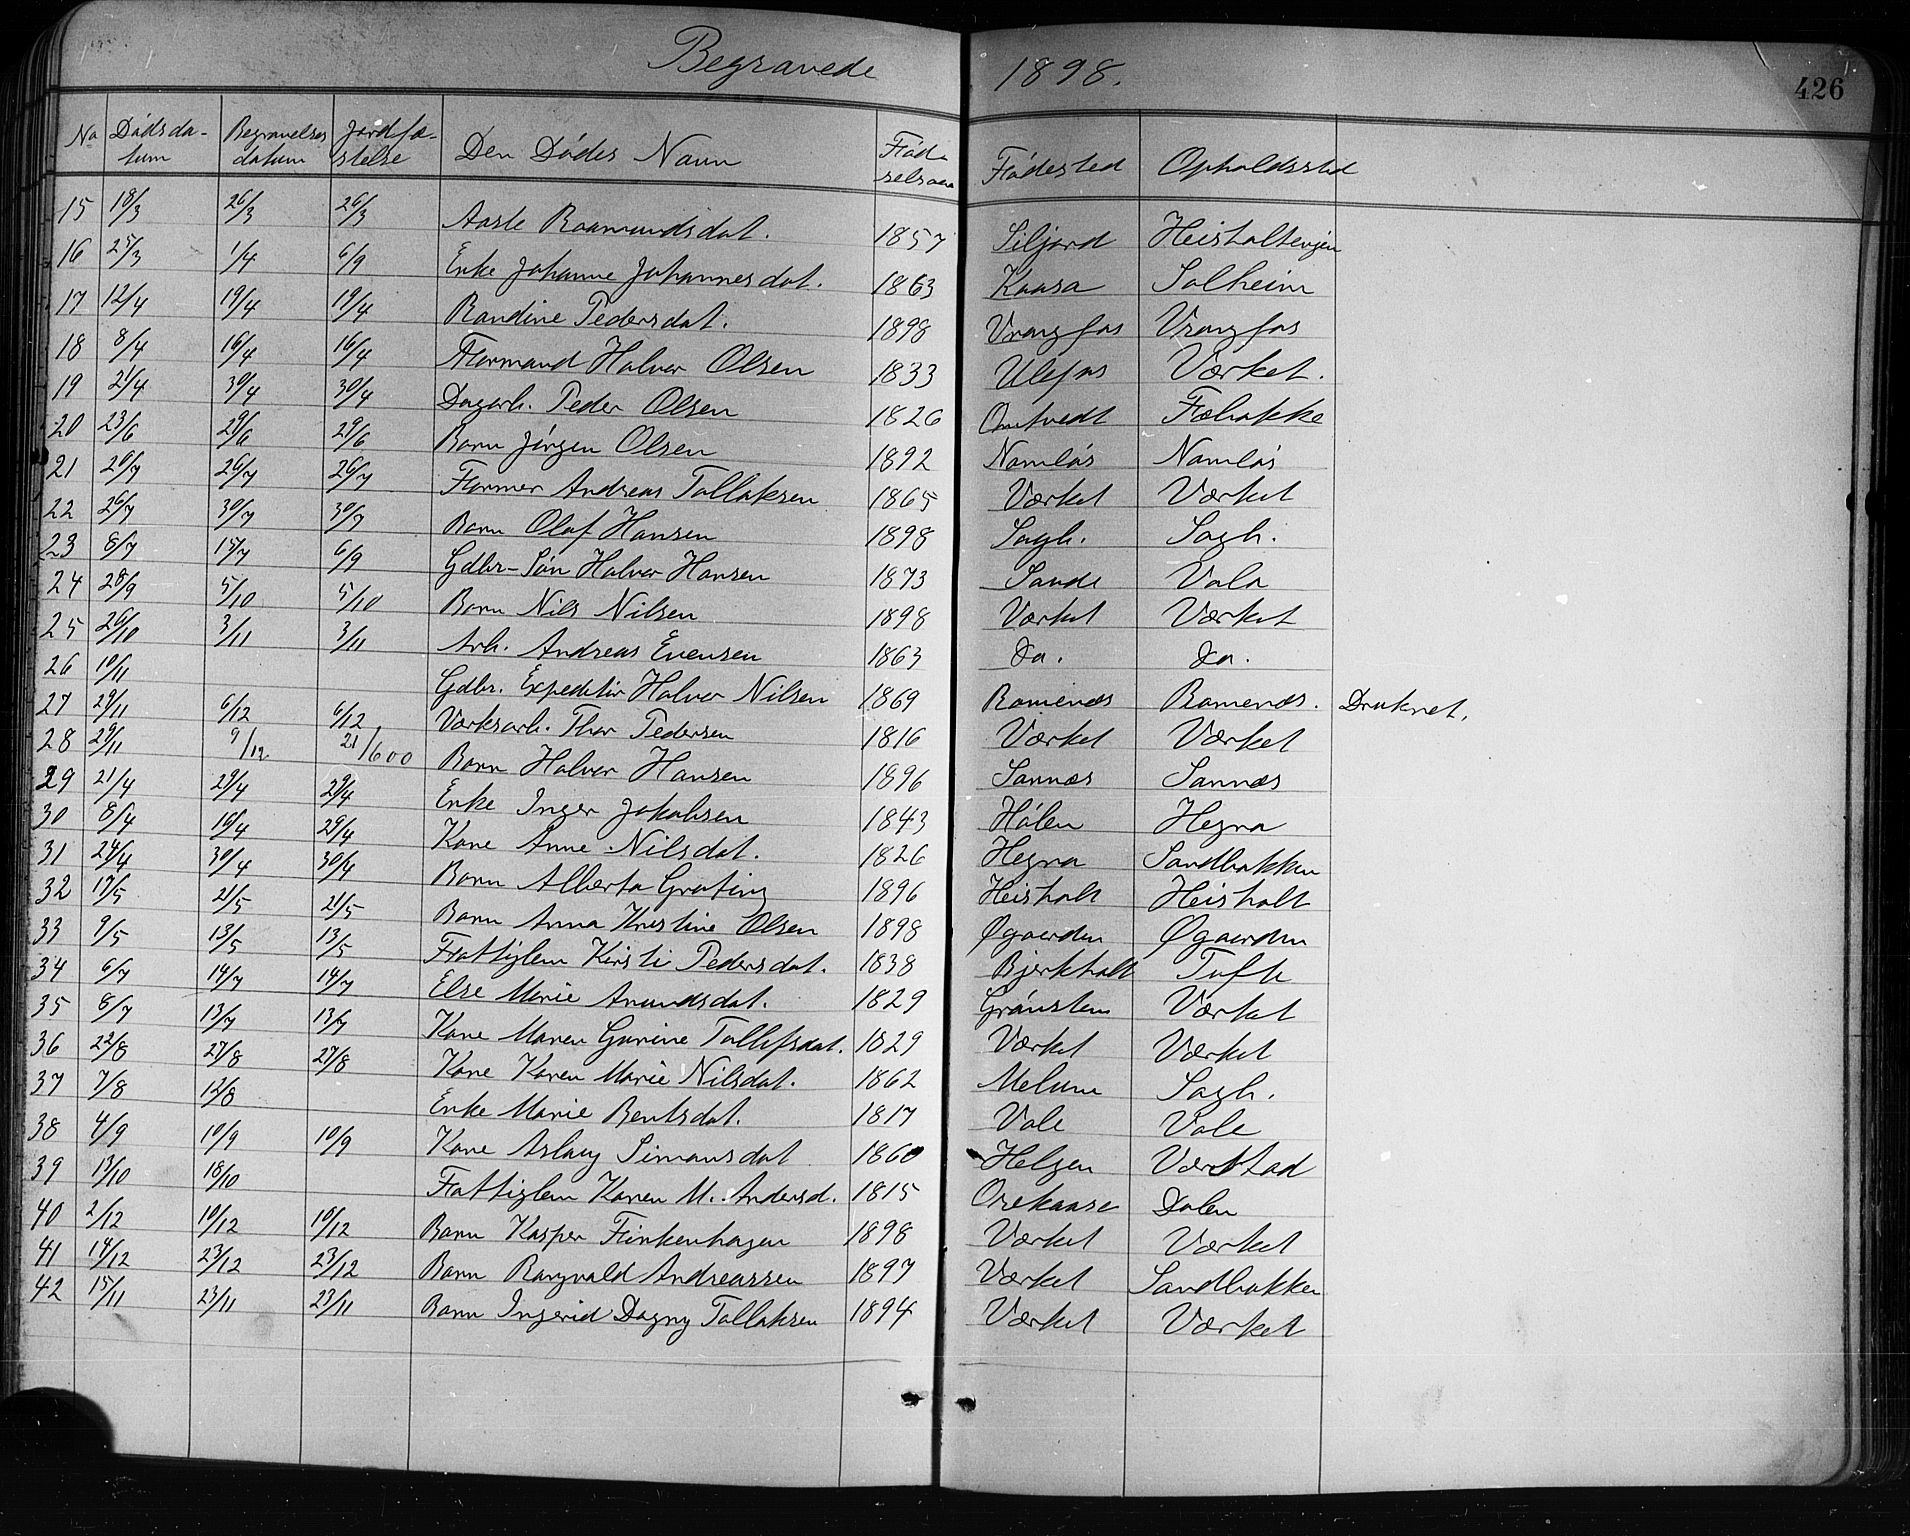 Begravede 1898. 426
No Dødsda-tum Begravelses datum Jordfæ-stelse Den Dødes Navn Fød-selsaar Fødested Opholdssted
15 18/3 26/3 26/3 Aasle Roamundsdat. 1857 Siljord Heisholteigen
16 25/3 1/4 6/9 Enke Johanne Johannesdat. 1863 Kaasa Solheim
17 12/4 19/4 19/4 Randine Pedersdat. 1898 Vrangfos Vrangfos
18 8/4 16/4 16/4 Formand Halvor Olsen 1833 Ulefos Værket.
19 21/4 30/4 30/4 Dagarb. Peder Olsen 1826 Omtvedt Fæbakke
20 23/6 29/6 29/6 Barn Jørgen Olsen 1892 Namløs Namløs
21 20/7 26/7 26/7 Former Andreas Tollaksen 1865 Værket Værket
22 26/7 30/7 30/7 Barn Olaf Hansen 1898 Sagb. Sagb.
23 8/7 15/7 6/9 Gdbr-Søn Halvor Hansen 1873 Sande Vala
24 28/9 5/10 5/10 Barn Nils Nilsen 1898 Værket Værket
25 26/10 3/11 3/11 Arb. Andreas Evensen 1863 Do. Do.
26 10/11 Gdbr. Expeditør Halvor Nilsen 1869 Romenæs Romenæs. Druknet.
27 29/11 6/12 6/12 Værksarb. Thor Pedersen 1816 Værket Værket
28 29/11 9/12 21/600 Barn Halvor Hansen 1896 Sannæs Sannæs
29 21/4 29/4 29/4 Enke Inger Jakobsen 1843 Hølen Hegna
30 8/4 16/4 29/4 Kone Anne Nilsdat. 1826 Hegna Sandbakken
31 24/4 30/4 30/4 Barn Alberta Grafting 1896 Heisholt Heisholt
32 17/5 21/5 21/5 Barn Anna Kristine Olsen 1898 Øgaarden Øgaarden
33 9/5 13/5 13/5 Fattiglem Kirsti Pedersdat. 1838 Bjerkholt Tufte
34 6/7 14/7 14/7 Else Marie Amundsdat. 1829 Grønsten Værket
35 8/7 13/7 13/7 Kone Maren Gurine Tollefsdat. 1829 Værket Værket
36 22/8 27/8 27/8 Kone Karen Marie Nilsdat. 1862 Melum Sagb.
37 7/8 12/8 Enke Marie Bentsdat. 1817 Vale Vale
38 4/9 10/9 10/9 Kone Aslaug Simonsdat 1860 Helgen Værstad
39 13/10 18/10 Fattiglem Karen M. Andersd. 1815 Orekaase Dalen
40 2/12 10/12 10/12 Barn Kasper Finkenhagen 1898 Værket Værket
41 14/12 23/12 23/12 Barn Rangvald Andreassen 1897 Værket Sandbakken
42 15/11 23/11 23/11 Barn Ingerid Dagny Tollaksen 1894 Værket Værket